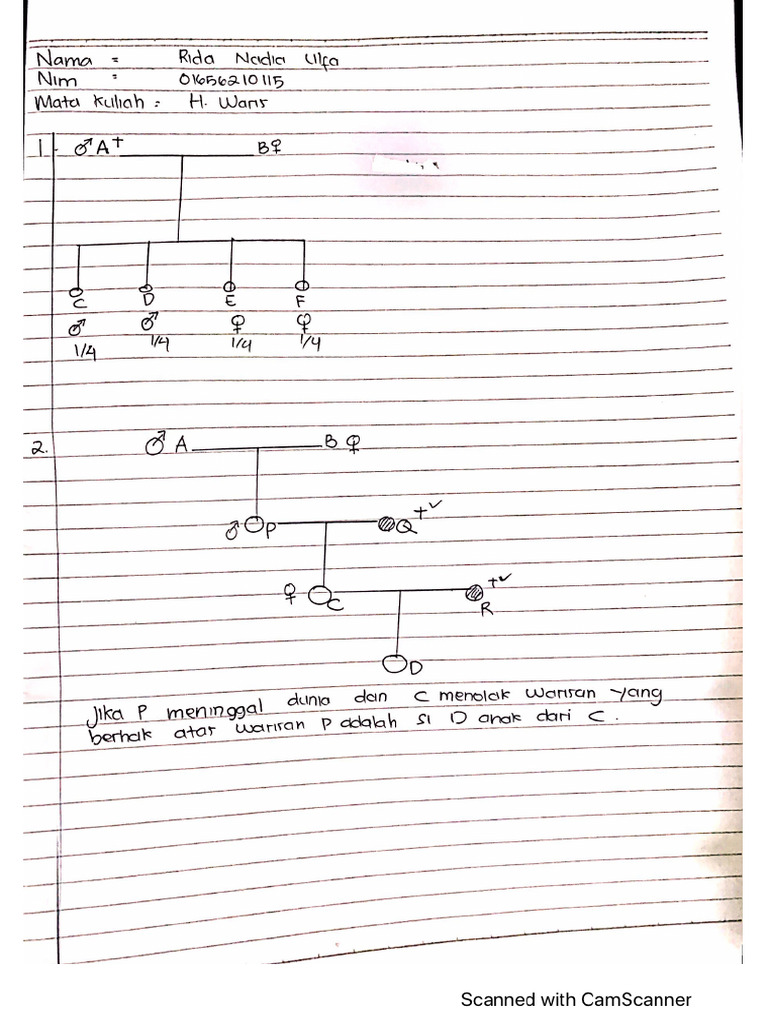 Nama = Rida Nadia Ulfa
Nim : 01656210115
Mata Kuliah : H. Waris
1. ♂ A+ B♀
C D E F
♂ ♂ ♀ ♀
1/4 1/4 1/4 1/4
2. ♂ A B ♀
♂ P Q +✓
♀ C R +✓
D
Jika P meninggal dunia dan C menolak warisan yang
berhak atas warisan P adalah si D anak dari C.
Scanned with CamScanner